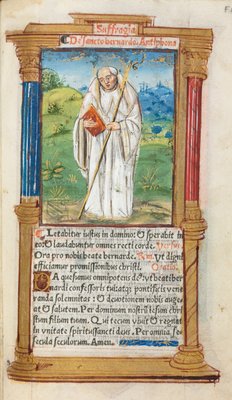 Suffragia
De sancto bernardo: Antiphona
Letabitur iustus in domino: & sperabit in
eo: & laudabuntur omnes recti corde. Versus
Ora pro nobis beate bernarde. Res. Ut digni
efficiamur promissionibus christi. Oratio.
Da quesumus omnipotens deus: ut beati ber
nardi confessoris tuiatqz pontificis vene
randa solemnitas: & deuotionem nobis auge
at & salutem. Per dominum nostrum iesum chri
stum filium tuum. Qui tecum viuit & regnat
in vnitate spiritussancti deus. Per omnia se
cula seculorum. Amen.